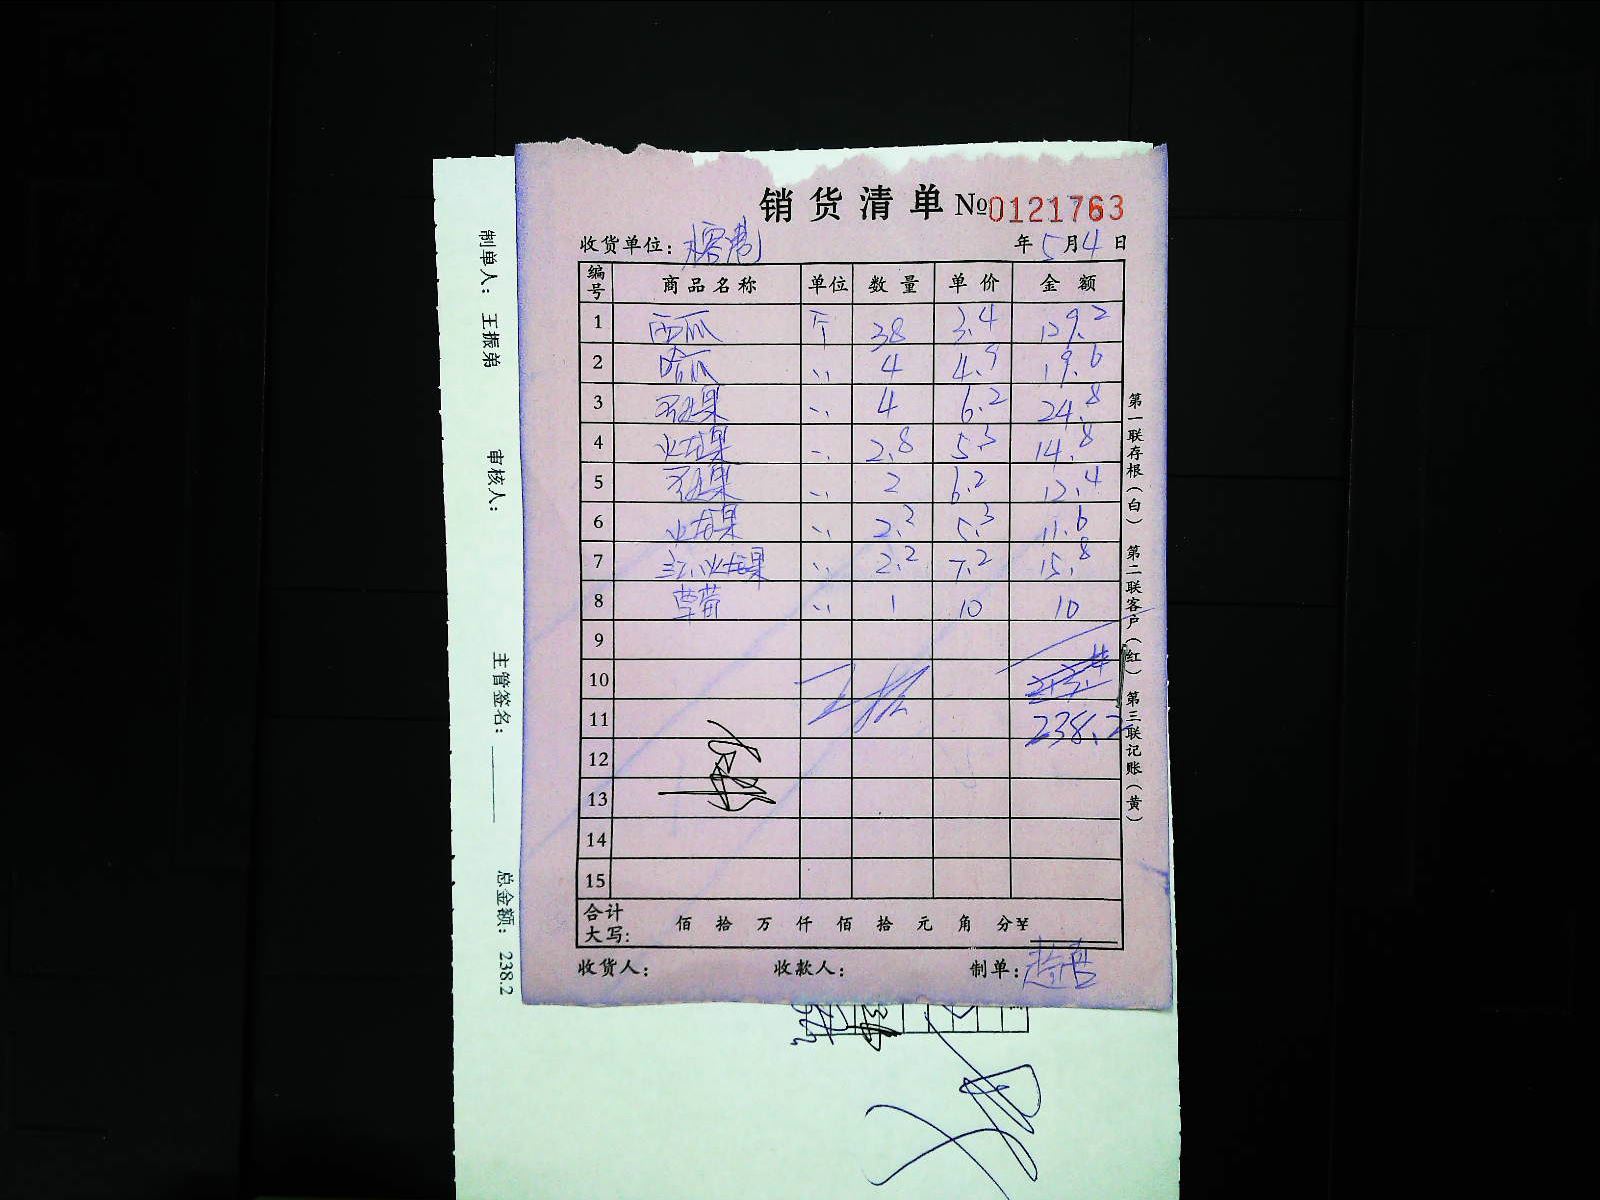 销货清单 №0121763
收货单位： 年 5 月 4 日
编号 商品名称 单位 数量 单价 金额
1 西瓜 个 38 3.4 129.2
2 哈瓜 〃 4 4.9 19.6
3 果 〃 4 6.2 24.8
4 火龙果 〃 2.8 5.3 14.8
5 果 〃 2 6.2 12.4
6 火龙果 〃 2.2 5.3 11.6
7 红火龙果 〃 2.2 7.2 15.8
8 草莓 〃 1 10 10
9
10
11 238.2
12
13
14
15
合计大写： 佰 拾 万 仟 佰 拾 元 角 分 ¥
收货人： 收款人： 制单：
第一联存根（白） 第二联客户（红） 第三联记账（黄）
制单人： 王振弟 审核人： 主管签名： 总金额： 238.2